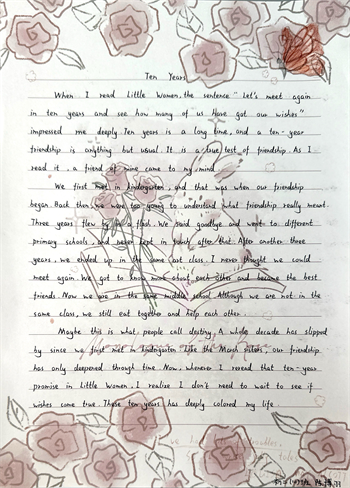 Ten Years
When I read Little Women, the sentence "Let's meet again
in ten years and see how many of us have got our wishes"
impressed me deeply. Ten years is a long time, and a ten-year
friendship is anything but usual. It is a true test of friendship. As I
read it, a friend of mine came to my mind.
We first met in kindergarten, and that was when our friendship
began. Back then, we were too young to understand what friendship really meant.
Three years flew by in a flash. We said goodbye and went to different
primary schools, and never kept in touch after that. After another three
years, we ended up in the same cat class. I never thought we could
meet again. We got to know more about each other and became the best
friends. Now we are in the same middle school. Although we are not in the
same class, we still eat together and help each other.
Maybe this is what people call destiny. A whole decade has slipped
by since we first met in kindergarten. Like the March sisters, our friendship
has only deepened through time. Now, whenever I reread that ten-year
promise in Little Women, I realize I don't need to wait to see if
wishes come true. These ten years has deeply colored my life.
we